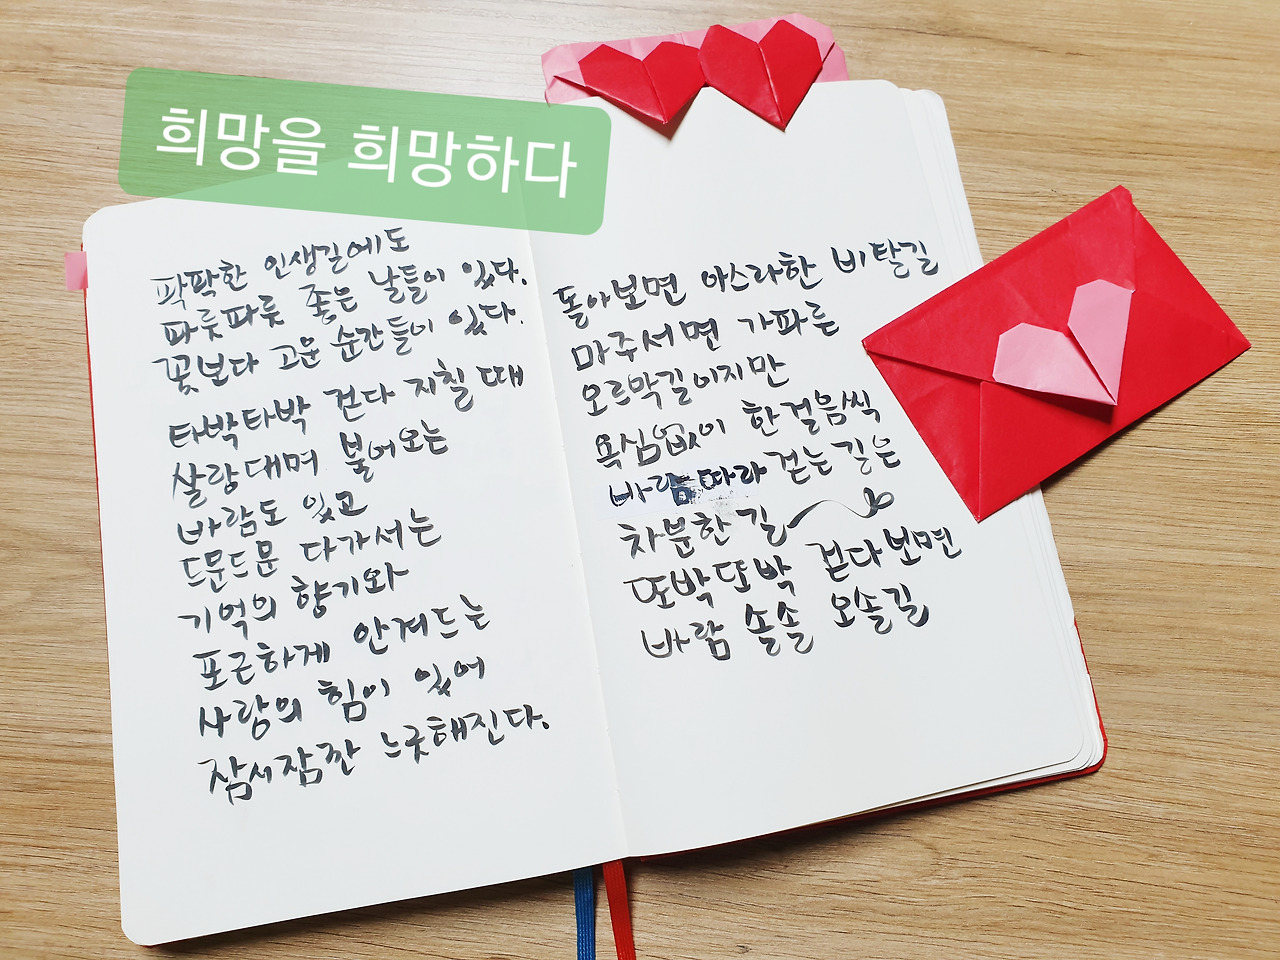 희망을 희망하다
팍팍한 인생길에도
파릇파릇 좋은 날들이 있다.
꽃보다 고운 순간들이 있다.
타박타박 걷다 지칠 때
살랑대며 불어오는
바람도 있고
드문드문 다가서는
기억의 향기와
포근하게 안겨드는
사랑의 힘이 있어
잠시잠깐 느긋해진다.
돌아보면 아스라한 비탈길
마주서면 가파른
오르막길이지만
욕심없이 한 걸음씩
바람따라 걷는 길은
차분한 길
또박또박 걷다보면
바람 솔솔 오솔길